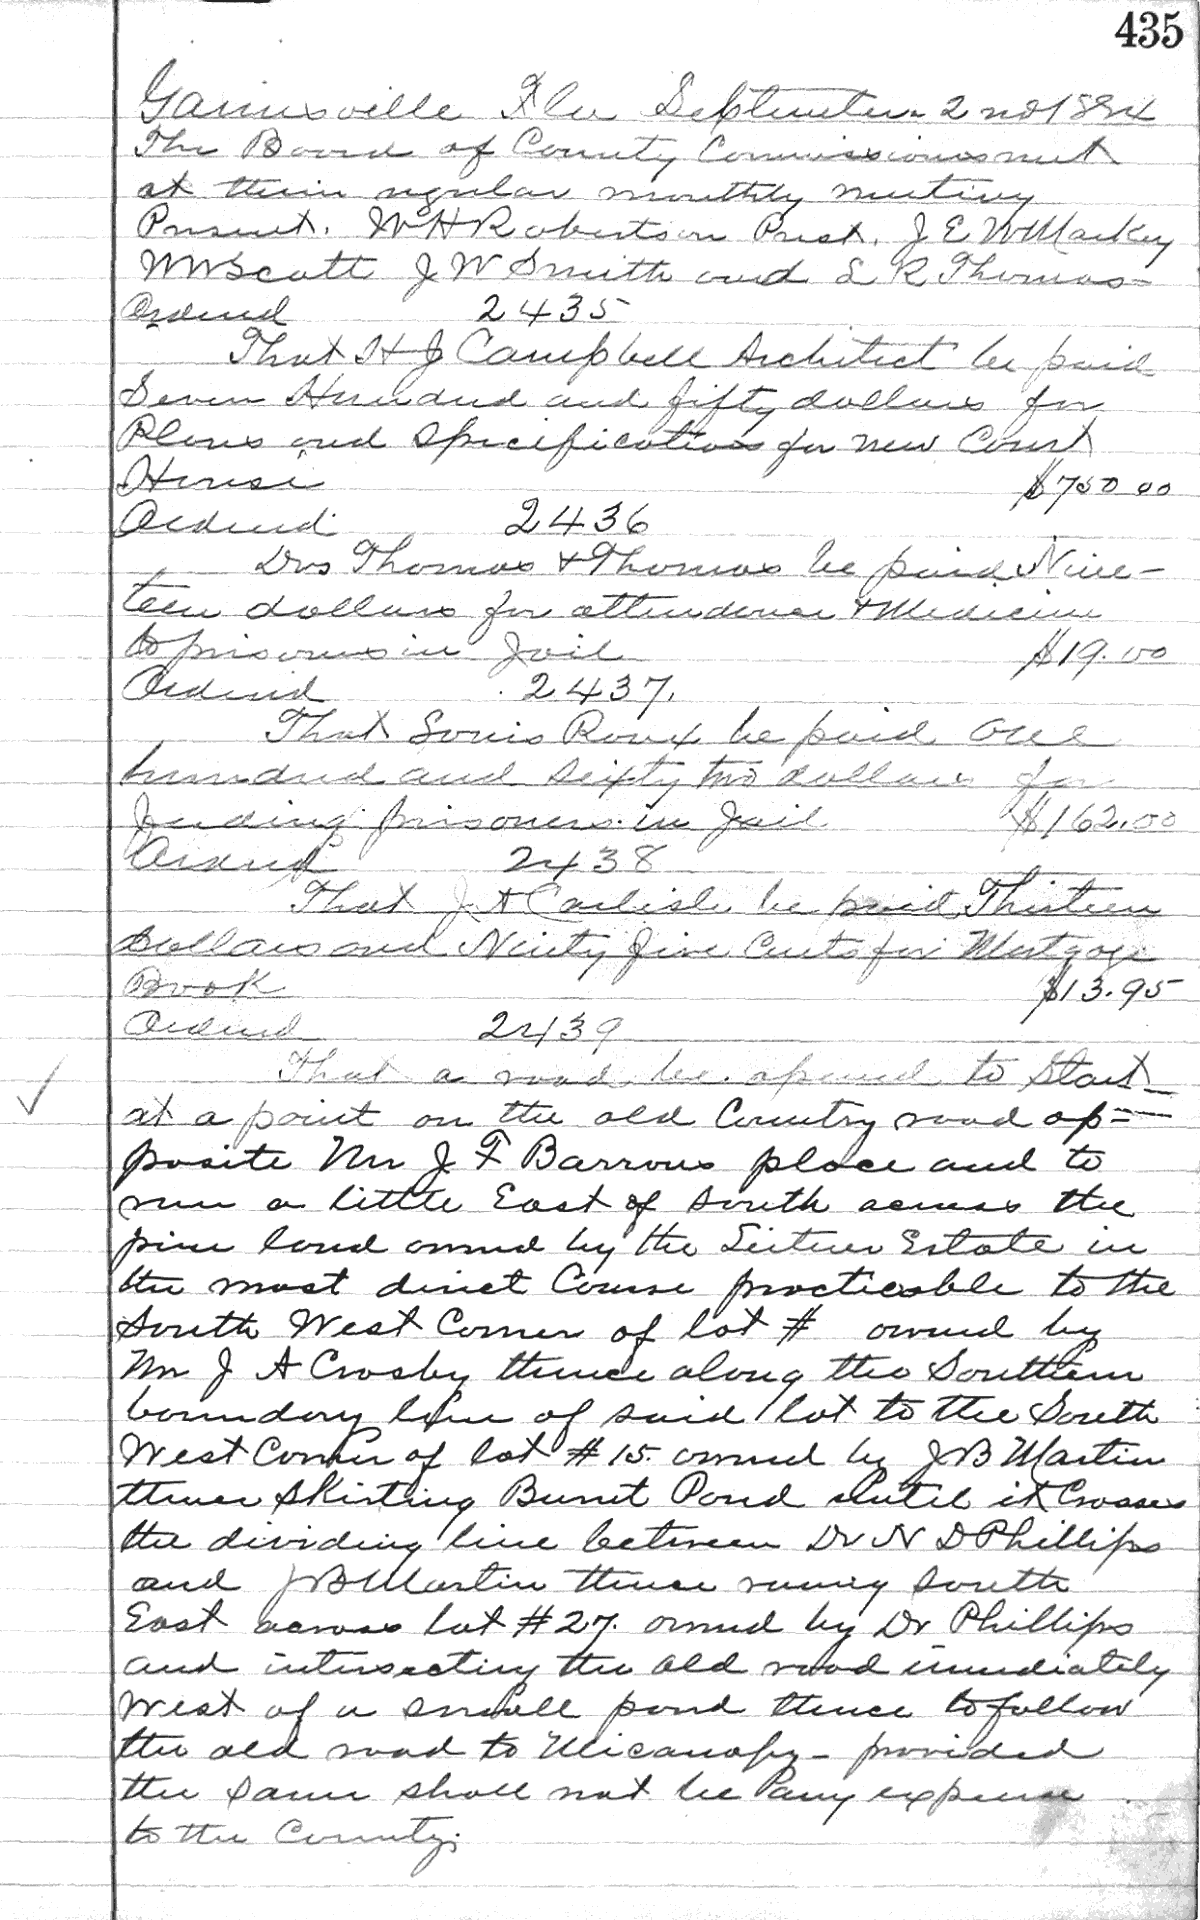 435
Gainesville Fla September 2nd 1884
The Board of County Commissioners met
at their regular monthly meeting
Present. W H Robertson Prest. J E W Markey
W W Scott J W Smith and L R Thomas
Ordered 2435
That H J Campbell Architect be paid
Seven Hundred and fifty dollars for
Plans and Specifications for new Court
House $750.00
Ordered 2436
Drs Thomas & Thomas be paid Nine-
teen dollars for attendance & Medicine
to prisoners in Jail $19.00
Ordered 2437.
That Louis Roux be paid One
hundred and sixty two dollars for
feeding prisoners in Jail $162.00
Ordered 2438
That J A Carlisle be paid Thirteen
Dollars and Ninety five Cents for Mortgage
Book $13.95
Ordered 2439
That a road be opened to Start
at a point on the old Country road op=
posite Mr J F Barrows place and to
run a little East of South across the
pine land owned by the Leitner Estate in
the most direct Course practicable to the
South West Corner of lot # owned by
Mr J A Crosby thence along the Southern
boundary line of said lot to the South
West Corner of lot #15. owned by J B Martin
thence Skirting Burnt Pond until it Crosses
the dividing line between Dr N D Phillips
and J B Martin thence runing South
East across lot #27. owned by Dr Phillips
and intersecting the old road immediately
West of a small pond thence to follow
the old road to Micanopy - provided
the same shall not be any expense
to the County.